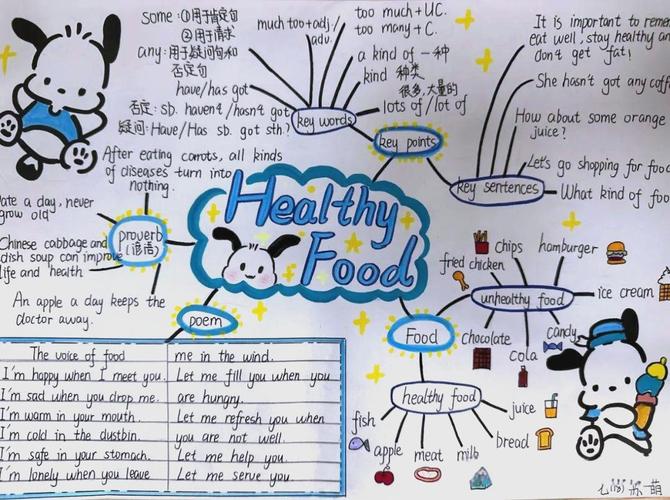 some: ①用于肯定句
②用于请求
any: 用于疑问句和
否定句
have/has got
否定: sb. haven't/hasn't got
疑问: Have/Has sb. got sth.?
much too+adj/
adv.
too much+UC.
too many+C.
a kind of 一种
kind 种类
很多,大量的
lots of/lot of
key words
key points
It is important to
eat well, stay healthy and
don't get fat!
She hasn't got any
How about some orange
juice?
Let's go shopping for food
What kind of
key sentences
After eating carrots, all kinds
of diseases turn into
nothing.
ate a day, never
grow old
proverb
Chinese cabbage and
dish soup can improve
life and health
An apple a day keeps the
doctor away.
Healthy
Food
poem
The voice of food
I'm happy when I meet you.
I'm sad when you drop me.
I'm warm in your mouth.
I'm cold in the dustbin.
I'm safe in your stomach.
I'm lonely when you leave
me in the wind.
Let me fill you when you
are hungry.
Let me refresh you when
you are not well.
Let me help you.
Let me serve you.
Food
unhealthy food
fried chicken
chips
hamburger
ice cream
candy
cola
chocolate
healthy food
fish
apple
meat
milk
bread
juice